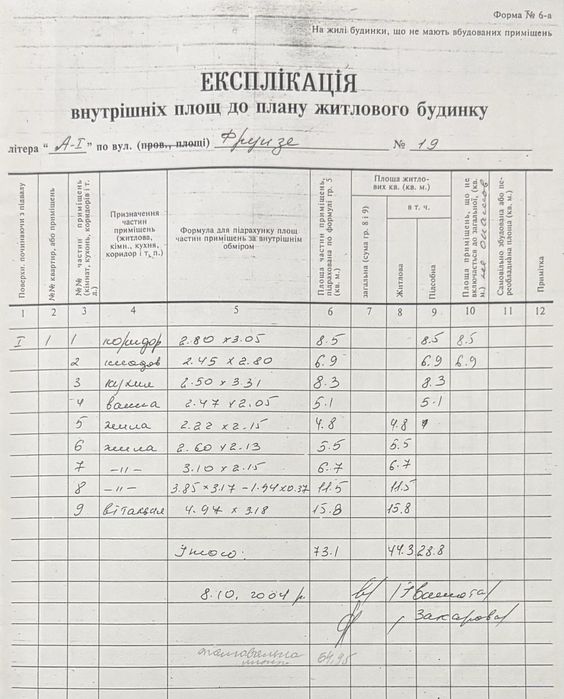 Форма № 6-а
На жилі будинки, що не мають вбудованих приміщень
ЕКСПЛІКАЦІЯ
внутрішніх площ до плану житлового будинку
літера " А-I " по вул. (пров., площі) Фрунзе № 19
Поверхи, починаючи з підвалу
№№ квартир, або приміщень
№№ частин приміщень (кімнат, кухонь, коридорів і т. д.)
Призначення частин приміщень (житлова, кімн., кухня, коридор і т. п.)
Формула для підрахунку площ частин приміщень за внутрішнім обміром
Площа частин приміщень, підрахована по формулі гр. 5 (кв. м)
Площа житлових кв. (кв. м.)
загальна (сума гр. 8 і 9)
в т. ч.
Житлова
Підсобна
Площа приміщень, що не включається до загальної, (кв. м.)
Самовільно збудована або переобладнана площа (кв. м)
Примітка
1 2 3 4 5 6 7 8 9 10 11 12
I 1 1 коридор 2.80 x 3.05 8.5 8.5 8.5
2 кладов 2.45 x 2.80 6.9 6.9 6.9
3 кухня 2.50 x 3.31 8.3 8.3
4 ванна 2.47 x 2.05 5.1 5.1
5 жила 2.22 x 2.15 4.8 4.8
6 жила 2.60 x 2.13 5.5 5.5
7 -"- 3.10 x 2.15 6.7 6.7
8 -"- 3.85 x 3.17 - 1.94 x 0.37 11.5 11.5
9 вітальня 4.97 x 3.18 15.8 15.8
Итого: 73.1 44.3 28.8
8.10. 2004 р.
/Захарова/